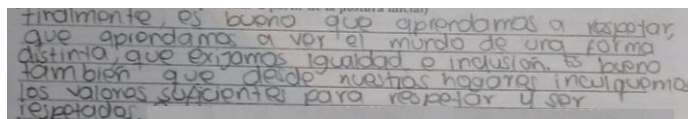 finalmente, es bueno que aprendamos a respetar,
que aprendamos a ver el mundo de una forma
distinta, que exijamos igualdad e inclusión. Es bueno
tambien que desde nuestros hogares inculquemos
los valores suficientes para respetar y ser
respetados.